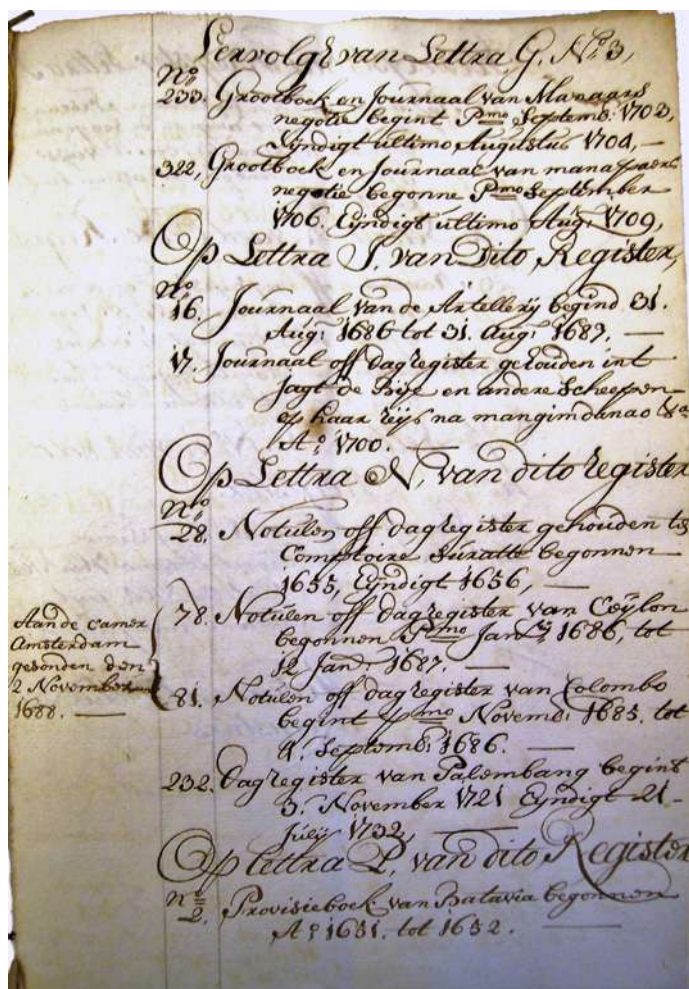 Vervolg van Lettra G. No 3,
No
233. Grootboek en Journaal van Manaars
negotie begint Pmo Septemb: 1703,
Eyndigt ultimo Augustus 1704, —
322, Grootboek en Journaal van manapaers
negotie begonne Pmo September
1706. Eyndigt ultimo Aug: 1709,
Op Lettra J. van Dito Register,
No
16. Journaal van de Artellerij begind 31.
Aug: 1686 tot 31. Aug: 1687. —
17. Journaal off dagregister gehouden int
Jagt de Bije en andere Scheepen
op haar reijs na mangimdanao
Ao 1700. —
Op Lettra N. van dito register
No
28. Notulen off dagregister gehouden te
Comptoire Suratte begonnen
1655, Eyndigt 1656, —
Aan de camer
Amsterdam
gesonden den
2 November
1688. —
78. Notulen off dagregister van Ceijlon
begonnen Pmo Jany 1686, tot
12 Jan: 1687. —
81. Notulen off dagregister van Colombo
begint pmo Novemb: 1685. tot
Septemb: 1686. —
232. Dagregister van Palembang begint
3. November 1721 Eyndigt 21
Julij 1732, —
Op lettra P. van dito Register
No
2. Provisieboek van Batavia begonnen
Ao 1651. tot 1652. —